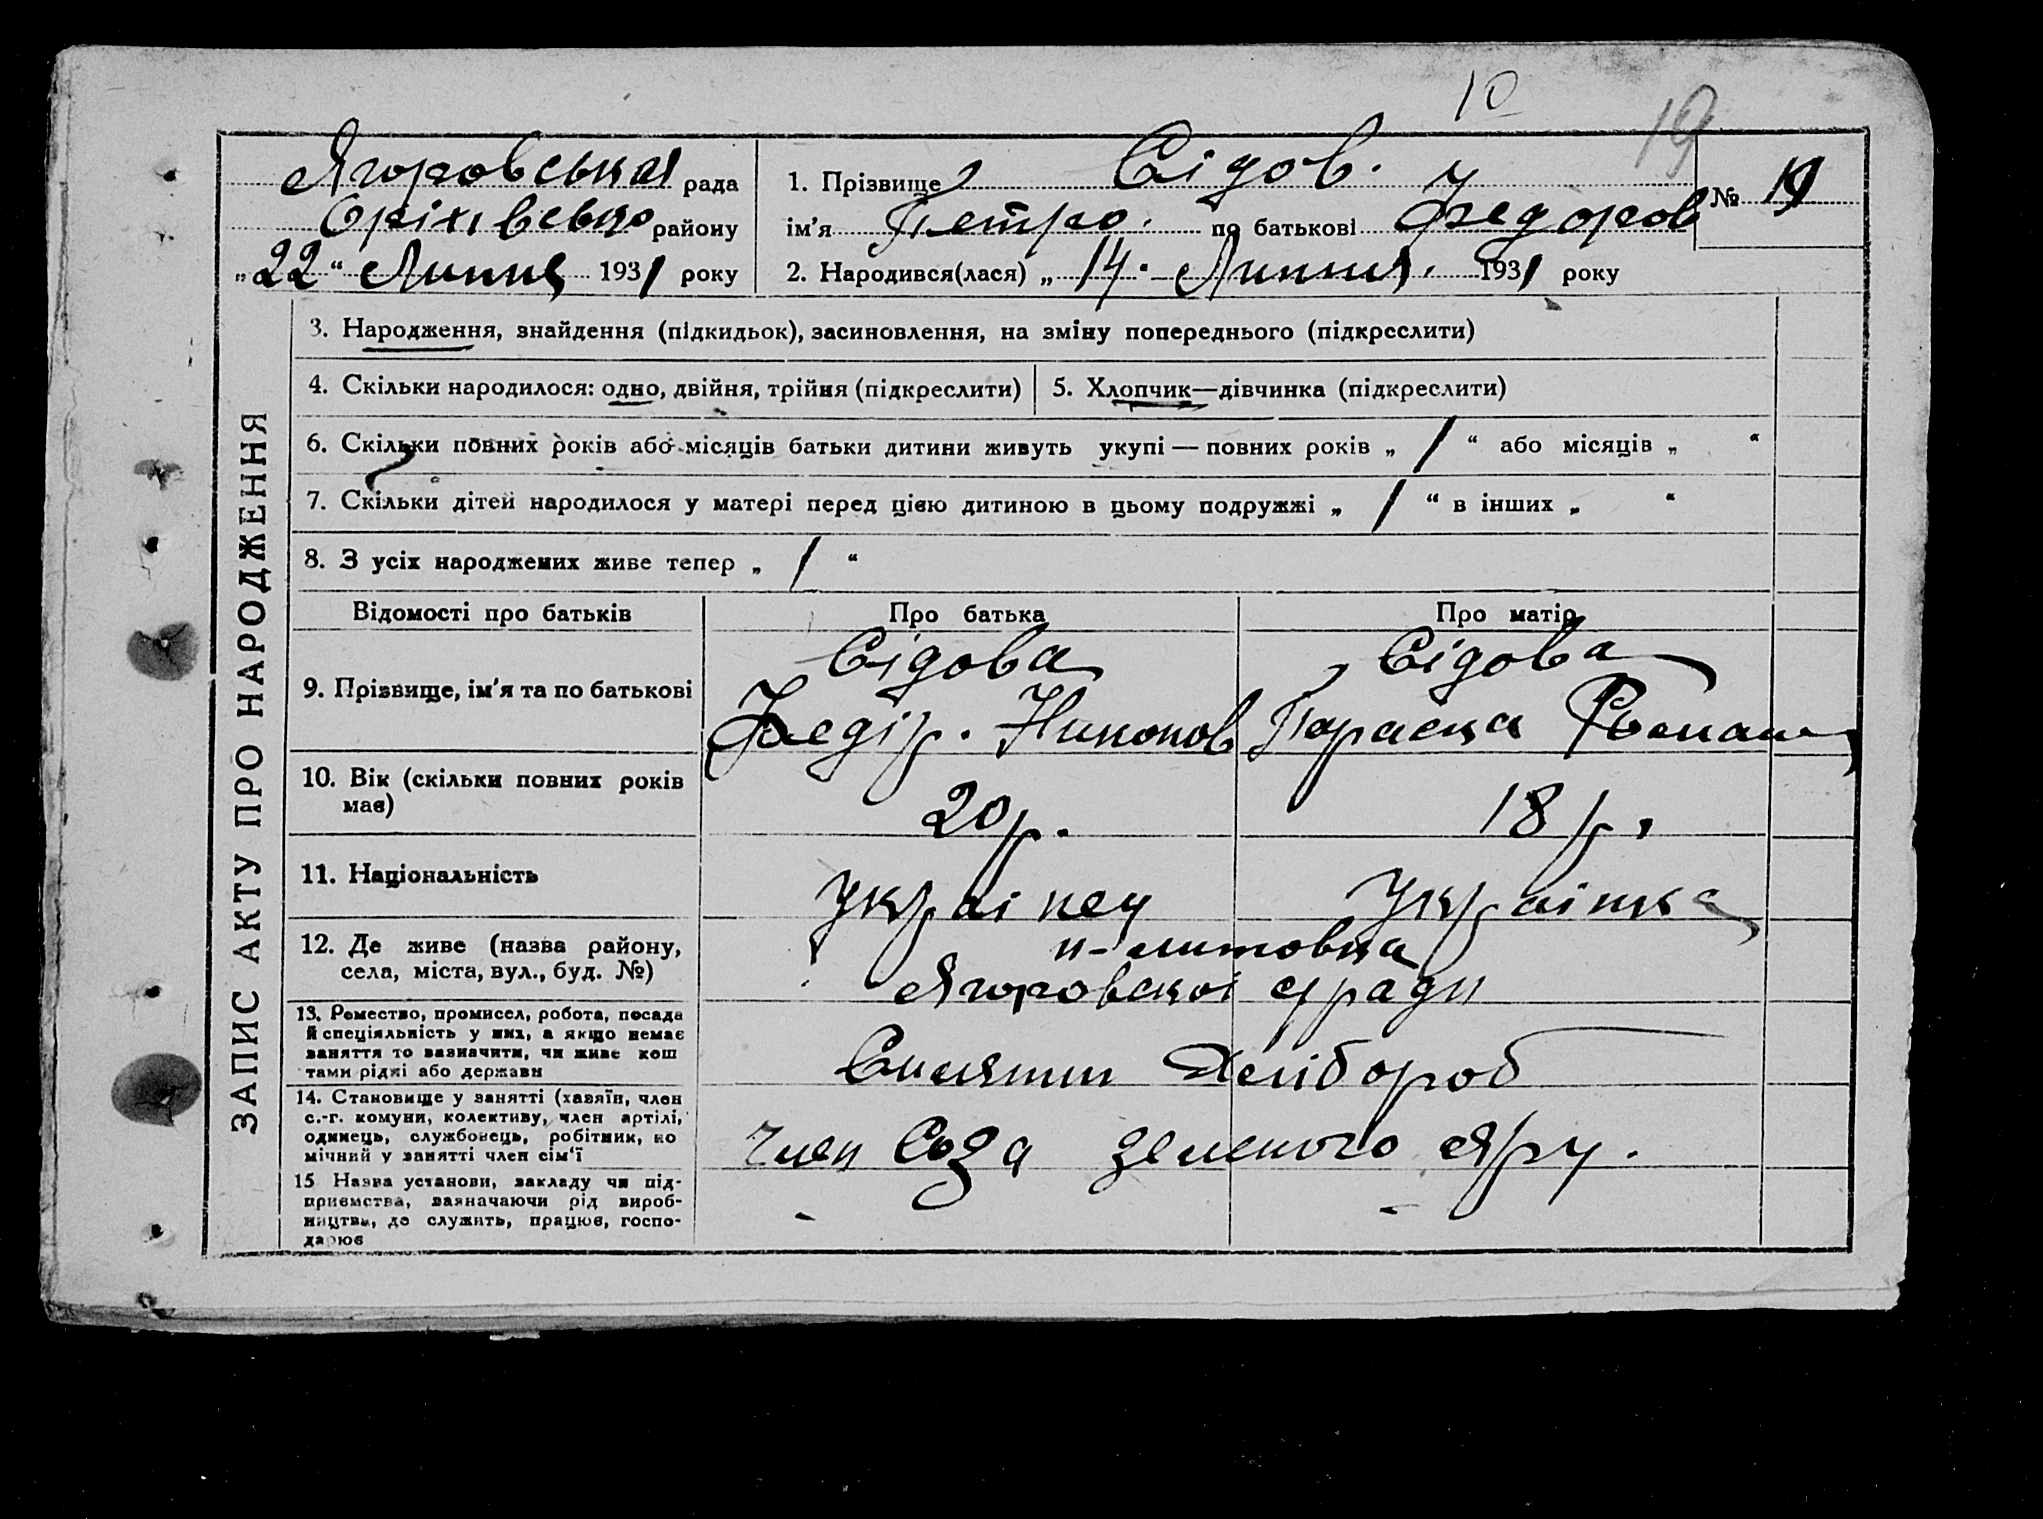 10
19
Ягоровська рада
Оріхівського району
„22“ Липня 1931 року
1. Прізвище Сідов.
ім'я Петро. по батькові Федоров
№ 19
2. Народився(лася) „14. Липня. 1931 року
ЗАПИС АКТУ ПРО НАРОДЖЕННЯ
3. Народження, знайдення (підкидьок), засиновлення, на зміну попереднього (підкреслити)
4. Скільки народилося: одно, двійня, трійня (підкреслити)
5. Хлопчик—дівчинка (підкреслити)
6. Скільки повних років або місяців батьки дитини живуть укупі — повних років „ 1 “ або місяців „ “
7. Скільки дітей народилося у матері перед цією дитиною в цьому подружжі „ 1 “ в інших „ “
8. З усіх народжених живе тепер „ 1 “
Відомості про батьків Про батька Про матір
9. Прізвище, ім'я та по батькові
Сідова
Федір. Никонов
Сідова
Параска Роман
10. Вік (скільки повних років
має)
20 р.
18 р.
11. Національність
Українец
Українка
12. Де живе (назва району,
села, міста, вул., буд. №)
Ягоровской с ради
13. Ремество, промисел, робота, посада
й спеціяльність у них, а якщо немає
заняття то зазначити, чи живе кош
тами рідні або держави
Хлібороб
14. Становище у занятті (хазяїн, член
с.-г. комуни, колективу, член артілі,
одинець, службовець, робітник, по
мічний у занятті член сім'ї
член Соза зеленого Яру.
15 Назва установи, закладу чи під-
приємства, зазначаючи рід вироб-
ництва, де служить, працює, госпо-
дарює
- -